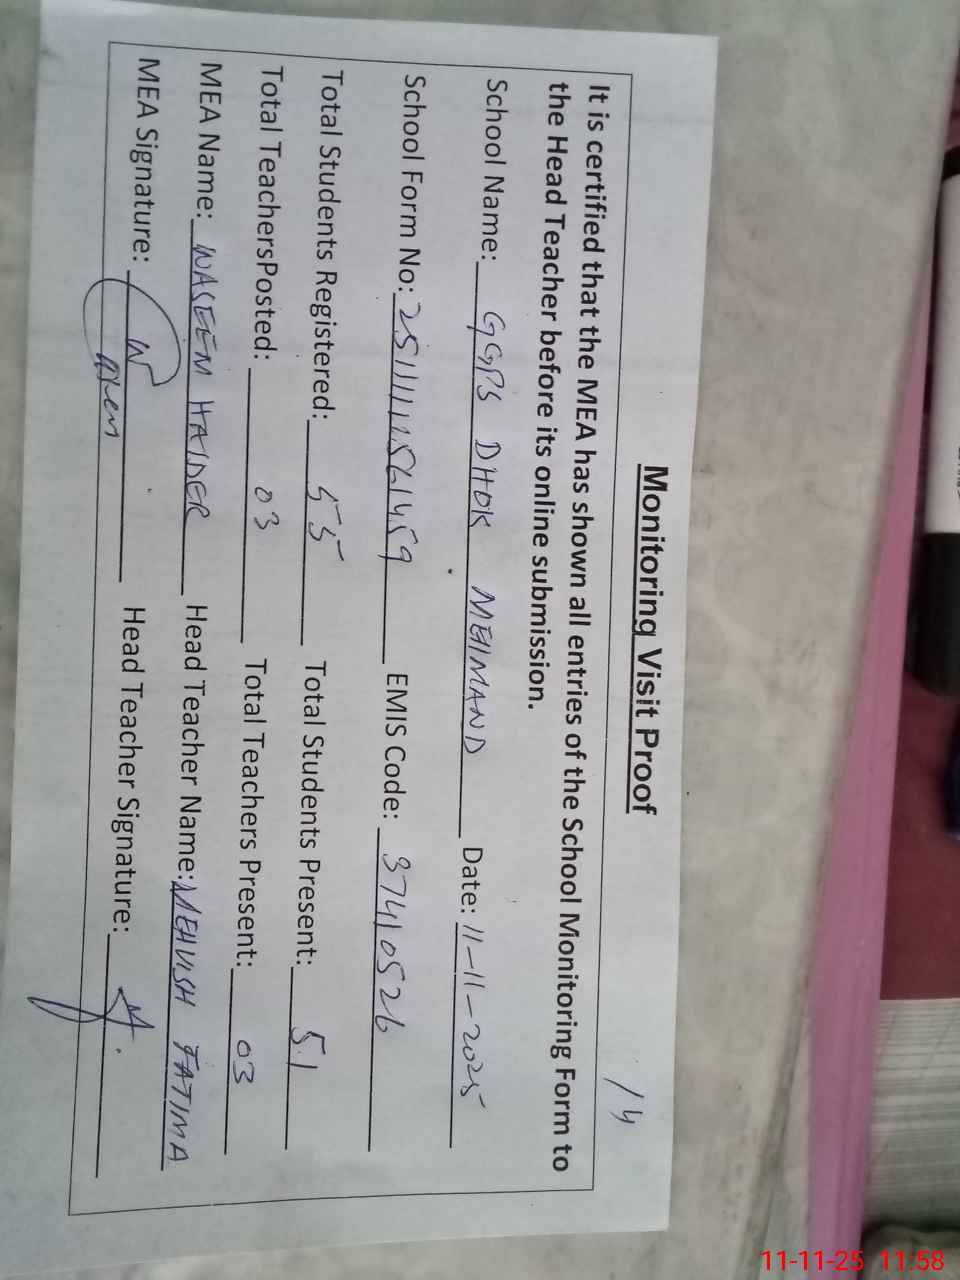 14
Monitoring Visit Proof
It is certified that the MEA has shown all entries of the School Monitoring Form to
the Head Teacher before its online submission.
School Name: GGPS DHOK MEHMAND Date: 11-11-2025
School Form No: EMIS Code: 37410526
Total Students Registered: 55 Total Students Present: 51
Total TeachersPosted: 03 Total Teachers Present: 03
MEA Name: WASEEM HAIDER Head Teacher Name: MEHVISH FATIMA
MEA Signature: Head Teacher Signature:
11-11-25 11:58